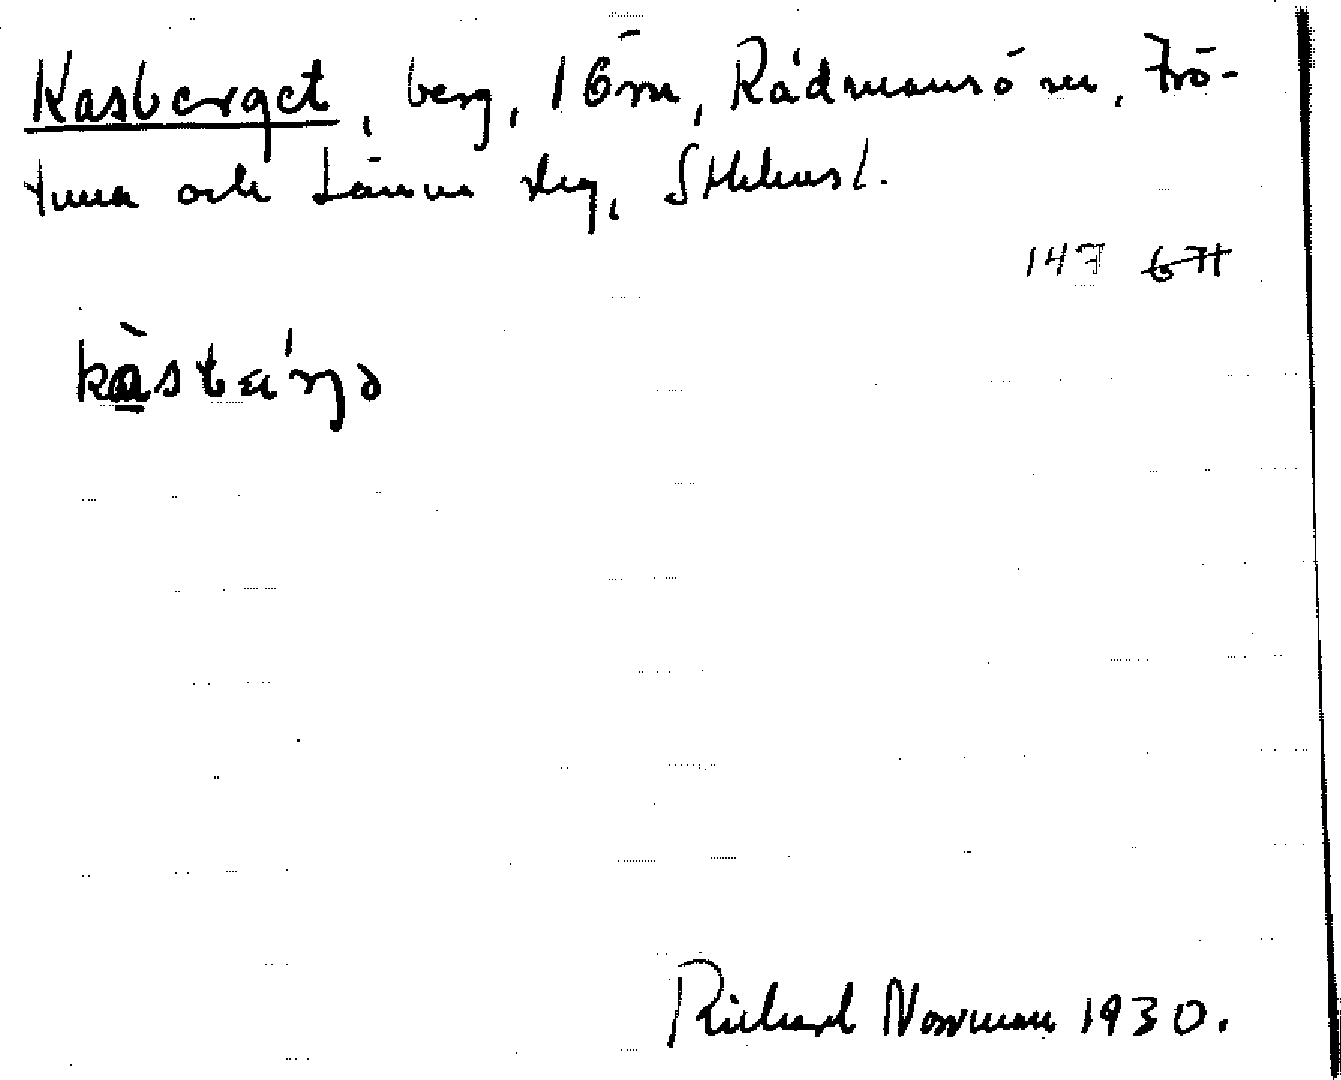 Kasberget, berg, 16 m, Rådmansö sn, Frö-
tuna och Länna skg, Sthlms l.
147 671
Richard Norrman 1930.